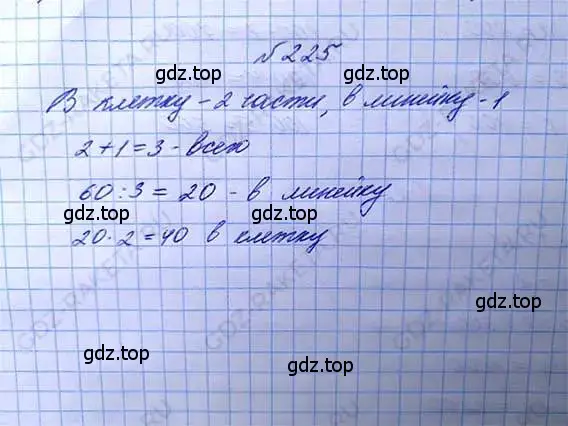 №225
gdz.top gdz.top
В клетку - 2 части, в линейку - 1
2 + 1 = 3 - всего
60 : 3 = 20 - в линейку
gdz.top gdz.top
20 · 2 = 40 в клетку
gdz.top
gdz.top
gdz.top gdz.top